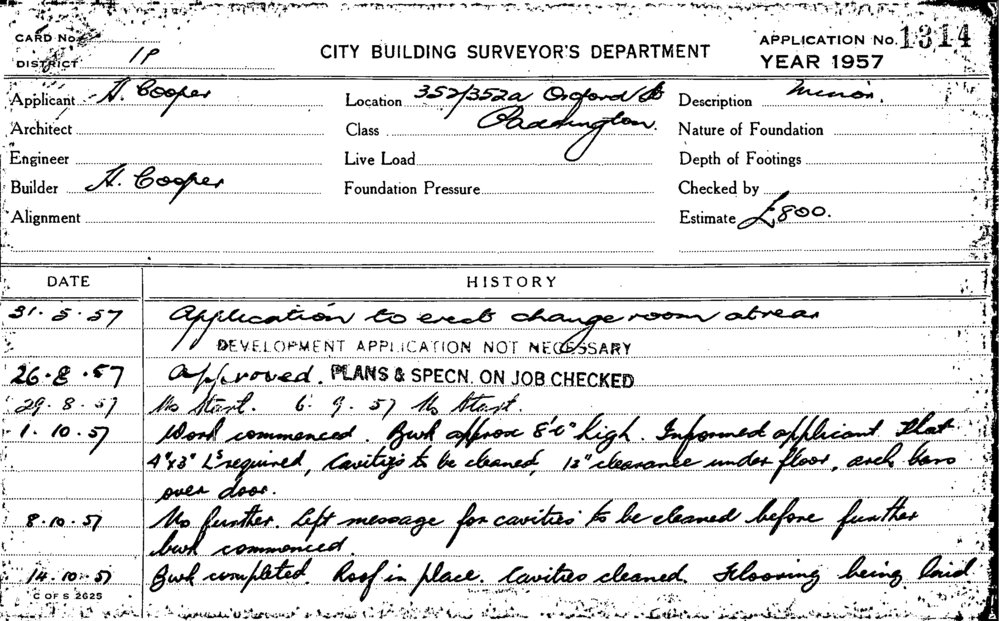 CARD No.
CITY BUILDING SURVEYOR'S DEPARTMENT
APPLICATION No. 1314
DISTRICT 1P
YEAR 1957
Applicant H. Cooper
Location 352/352a Oxford St
Description Minor.
Architect
Class Paddington.
Nature of Foundation
Engineer
Live Load
Depth of Footings
Builder H. Cooper
Foundation Pressure
Checked by
Alignment
Estimate £800.
DATE HISTORY
31.5.57 Application to erect change room at rear
DEVELOPMENT APPLICATION NOT NECESSARY
26.8.57 Approved. PLANS & SPECN. ON JOB CHECKED
29.8.57 No Start. 6.9.57 No Start.
1.10.57 Work commenced. Bwk approx 8'6" high. Informed applicant that
4"x3" Ls required, Cavities to be cleaned, 12" clearance under floor, arch bars
over door.
8.10.57 No further. Left message for cavities to be cleaned before further
bwk commenced.
14.10.57 Bwk completed. Roof in place. Cavities cleaned. Flooring being laid
C OF S 2625